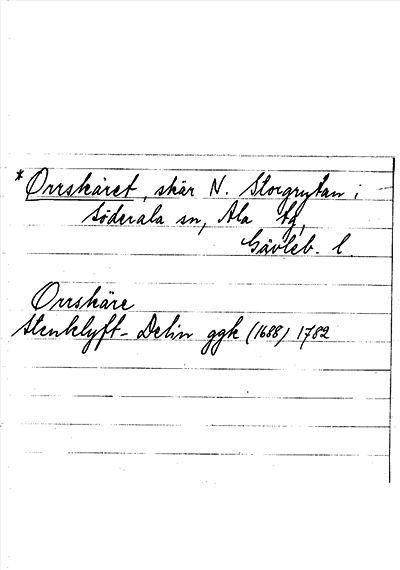 * Orrskäret, skär N. Storgrytan i
Söderala sn, Ala tg,
Gävleb. l.
Orrskäre
Stenklyft-Delin ggk (1688) 1782